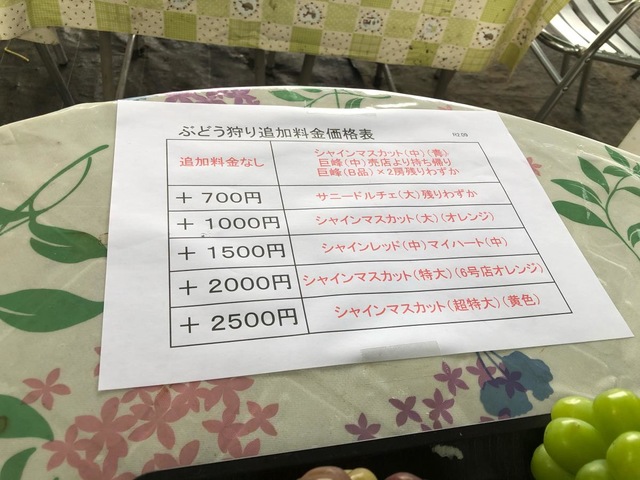 ぶどう狩り追加料金価格表
追加料金なし
シャインマスカット(中)(青)
巨峰(中)売店より持ち帰り
巨峰(B品)×2房残りわずか
+ 700円
サニードルチェ(大)残りわずか
+ 1000円
シャインマスカット(大)(オレンジ)
+ 1500円
シャインレッド(中)マイハート(中)
+ 2000円
シャインマスカット(特大)(6号店オレンジ)
+ 2500円
シャインマスカット(超特大)(黄色)